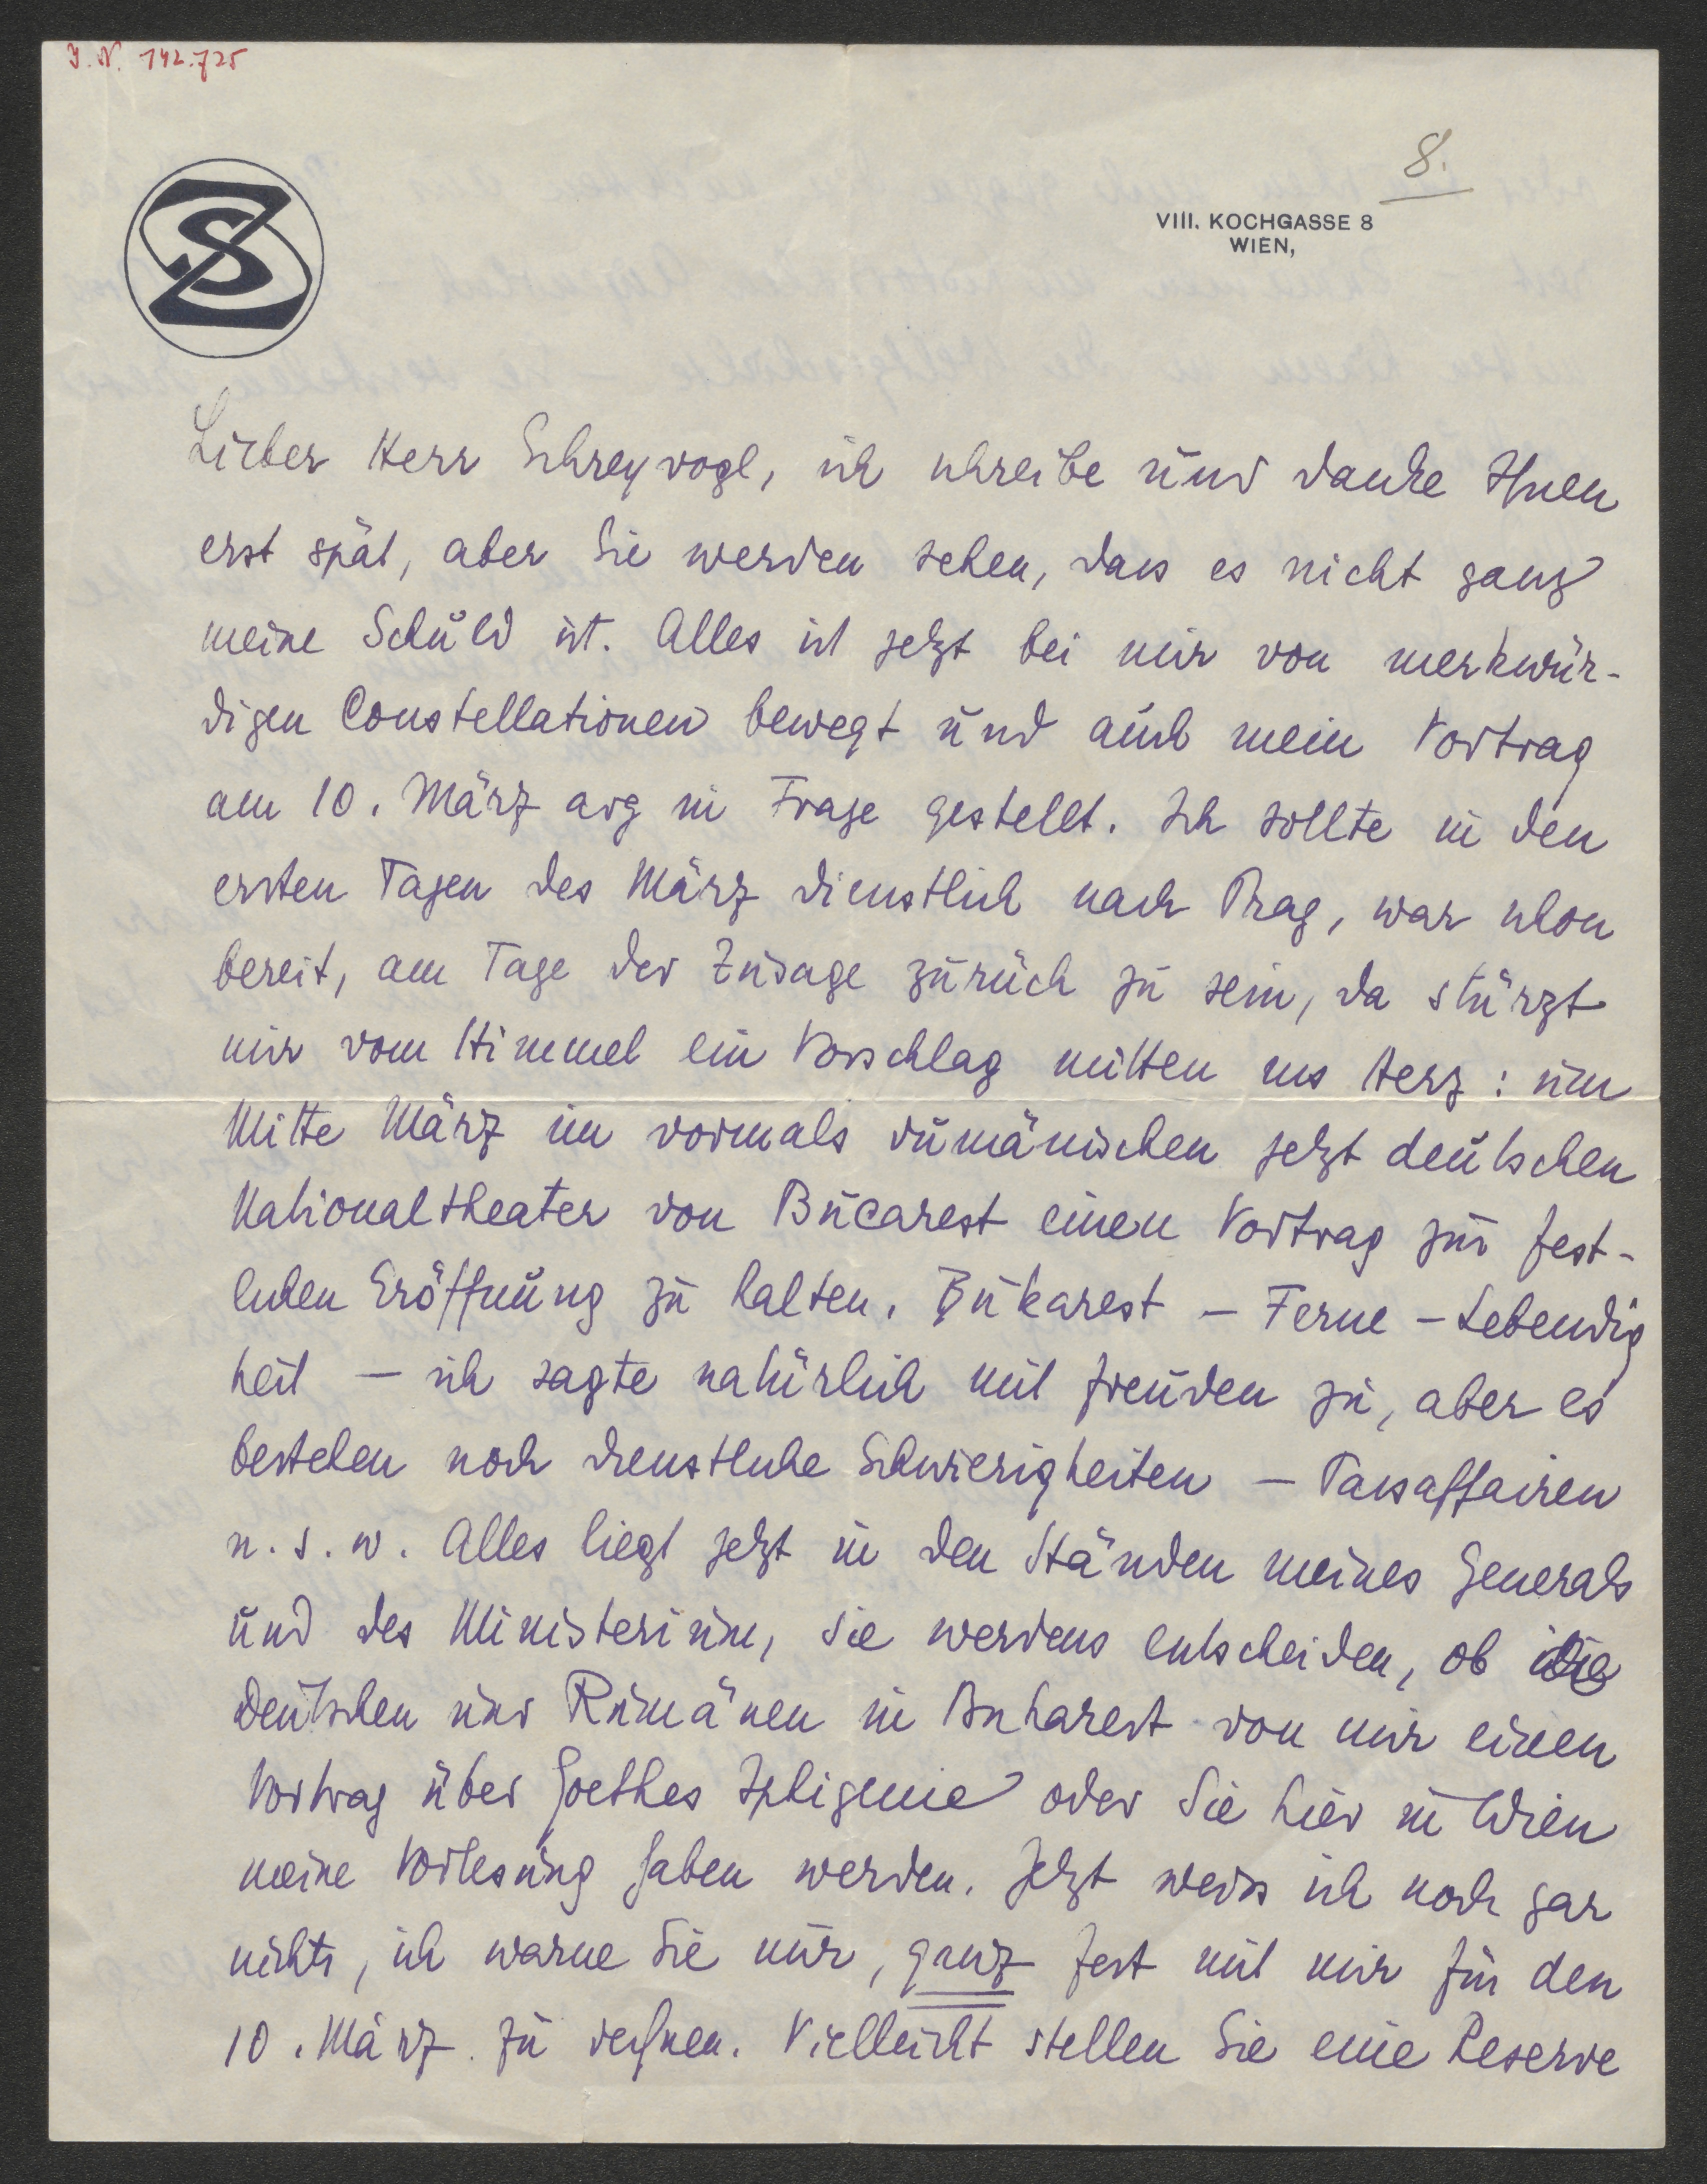 I. N. 142.725
8.
SZ
VIII. KOCHGASSE 8
WIEN,
Lieber Herr Schreyvogl, ich schreibe und danke Ihnen
erst spät, aber Sie werden sehen, dass es nicht ganz
meine Schuld ist. Alles ist jetzt bei mir von merkwür-
digen Constellationen bewegt und auch mein Vortrag
am 10. März arg in Frage gestellt. Ich sollte in den
ersten Tagen des März dienstlich nach Prag, war schon
bereit, am Tage der Zusage zurück zu sein, da stürzt
mir vom Himmel ein Vorschlag mitten ins Herz: um
Mitte März im vormals rumänischen jetzt deutschen
Nationaltheater von Bucarest einen Vortrag zur fest-
lichen Eröffnung zu halten. Bukarest – Ferne – Lebendig
keit – ich sagte natürlich mit Freuden zu, aber es
bestehen noch dienstliche Schwierigkeiten – Passaffairen
u. s. w. Alles liegt jetzt in den Händen meines Generals
und des Ministerium, sie werdens entscheiden, ob die
Deutschen und Rumänen in Bukarest von mir einen
Vortrag über Goethes Iphigenie oder Sie hier in Wien
meine Vorlesung haben werden. Jetzt weiss ich noch gar
nichts, ich warne Sie nur, ganz fest mit mir für den
10. März zu rechnen. Vielleicht stellen Sie eine Reserve